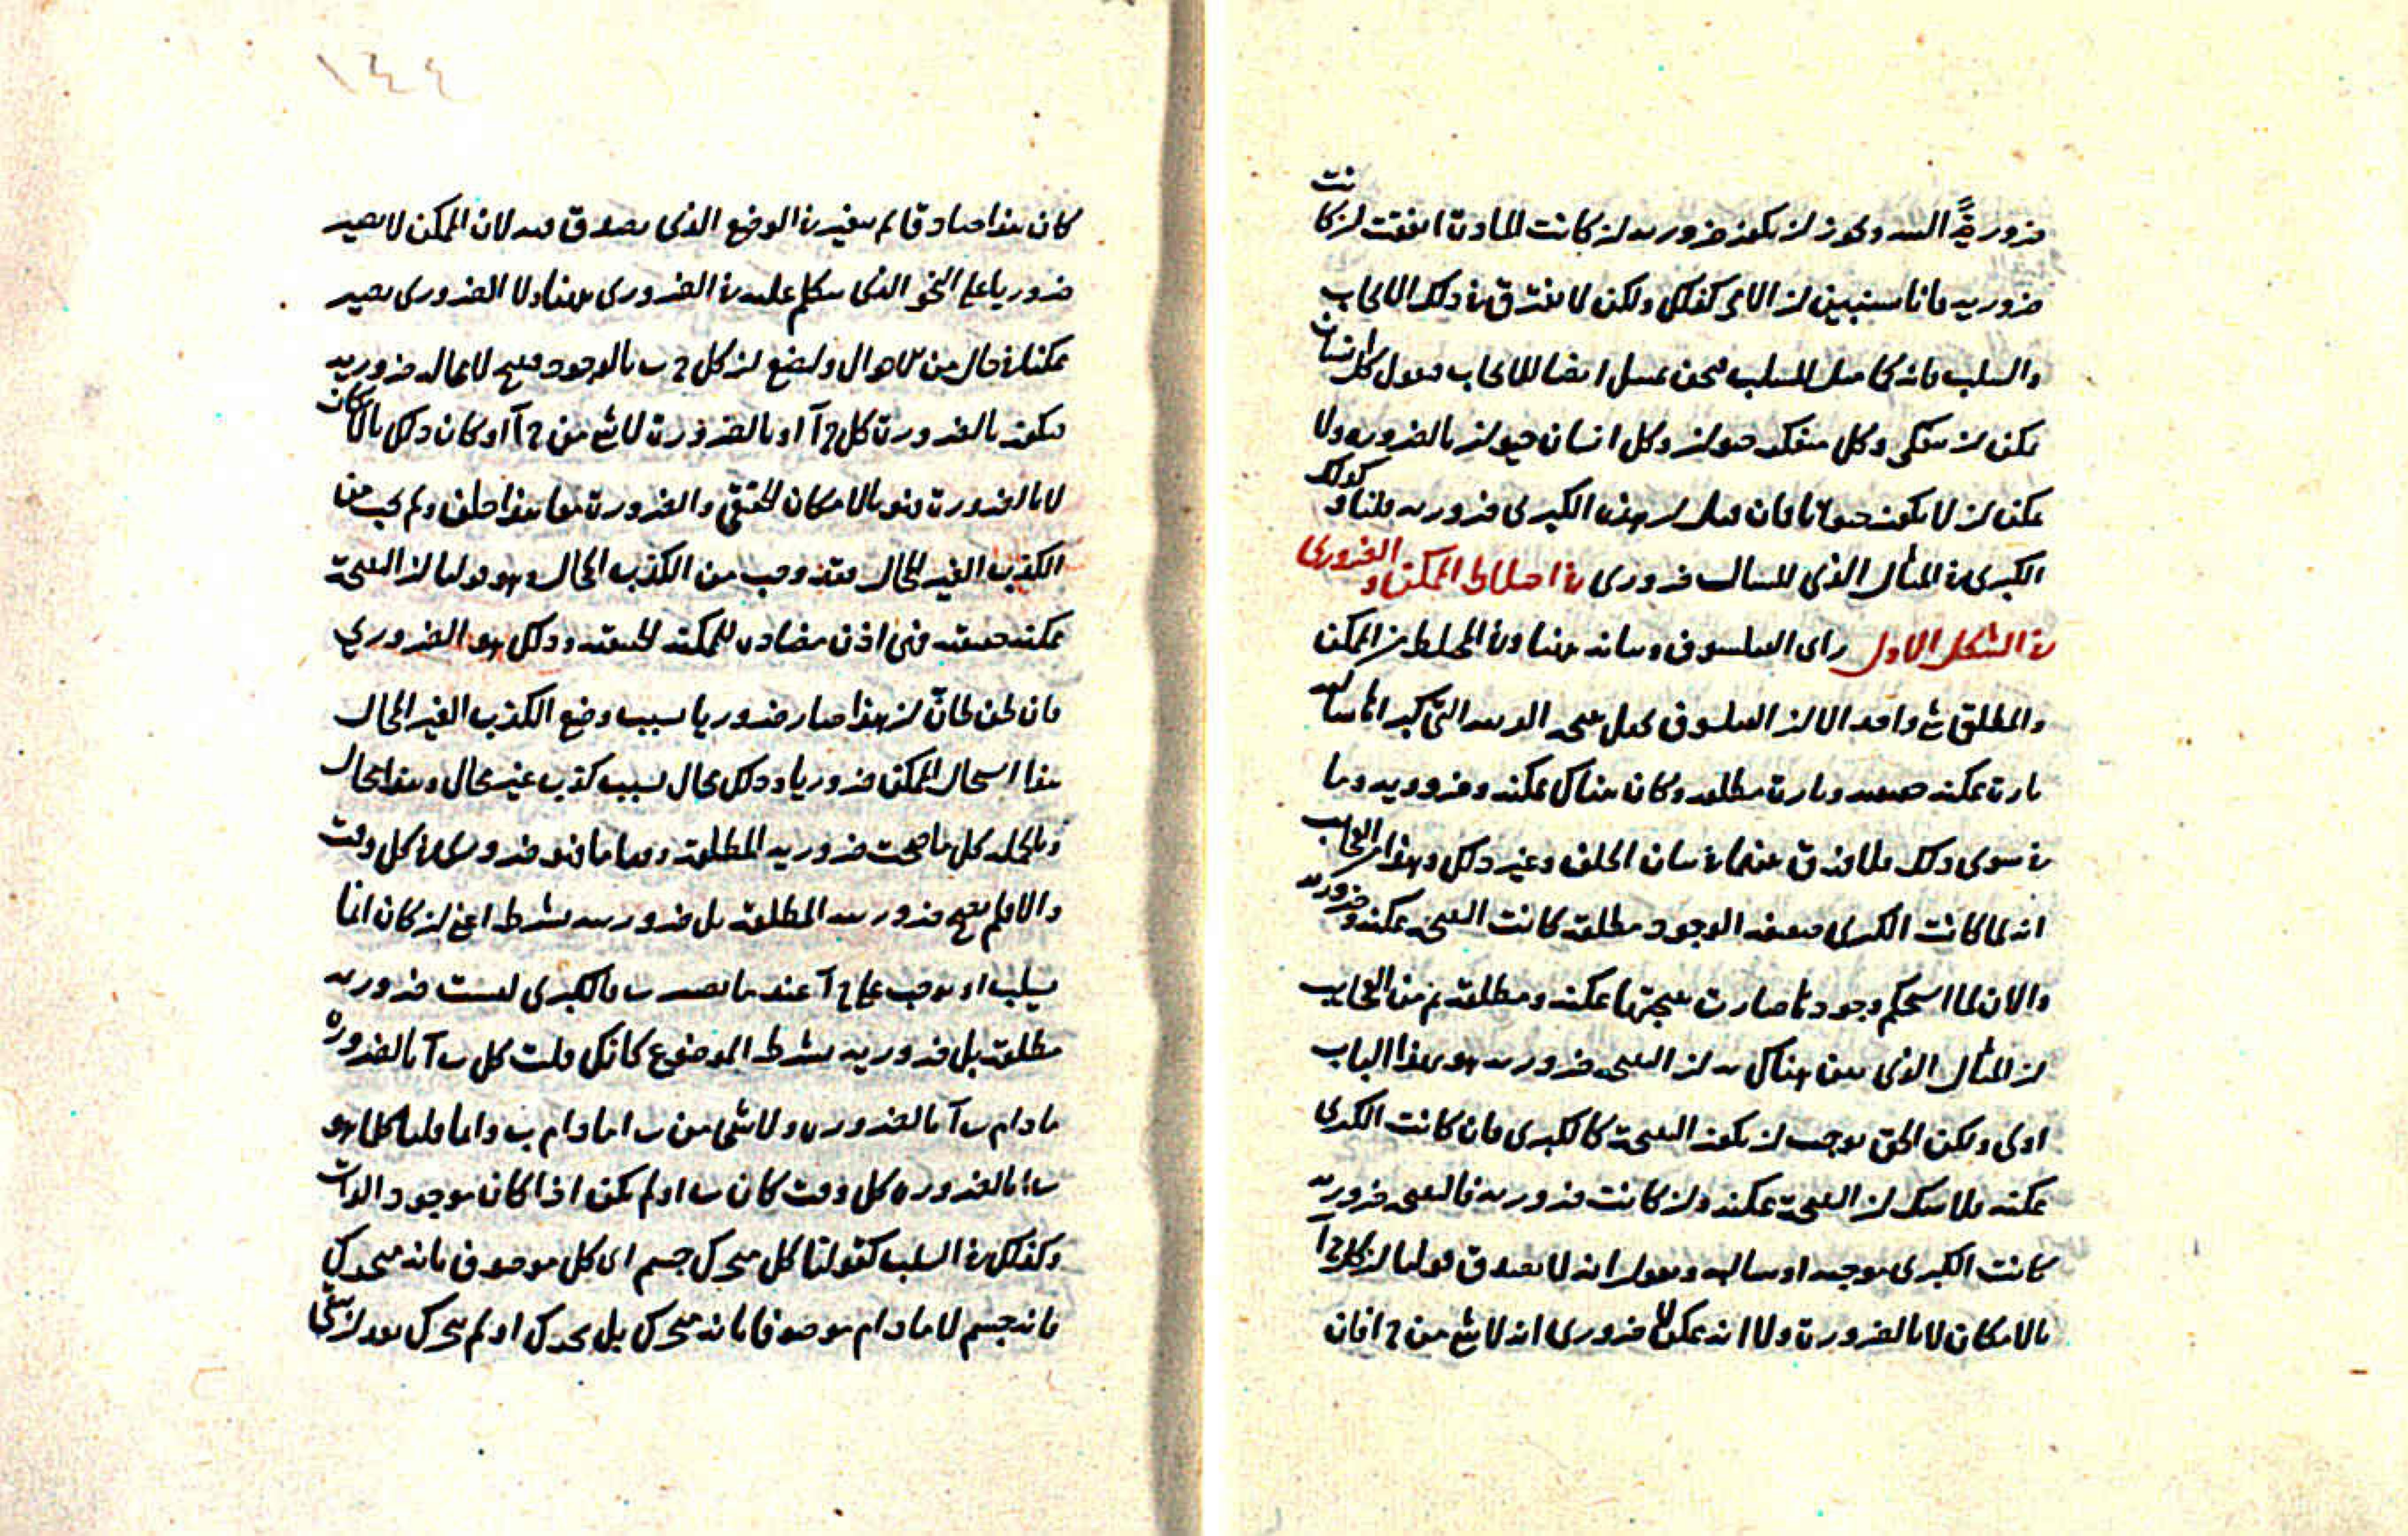 ضرورية البتة ويجوز ان يكون ضرورية ان كانت المادة اتفقت ان كانت
ضرورية فانا سنبين ان الامر كذلك ولكن لا يفترق في ذلك الايجاب
والسلب فانه كما مثل للسلب فنحن نمثل ايضا للايجاب فنقول كل انسان
يمكن ان يتفكر وكل متفكر حيوان وكل انسان حيوان بالضرورة ولا
يمكن ان لا يكون حيوانا فان قيل ان هذه الكبرى ضرورية قلنا وكذلك
الكبرى في المثال الذي للسالب ضروري في اختلاط الممكن والضروري
في الشكل الاول راى الفيلسوف وبيانه هاهنا وفي المختلط من الممكن
والمطلق شئ واحد الا ان الفيلسوف يجعل نتيجة القرينة التي كبراها سالبة
تارة ممكنة حقيقية وتارة مطلقة وكان هناك ممكنة وضرورية وما
في سوى ذلك فلا فرق عنده في بيان الخلف وغير ذلك وهذا من العجايب
انه لما كانت الكبرى ضعيفة الوجود مطلقة كانت النتيجة ممكنة وضرورية
والان لما استحكم وجودها صارت نتيجتها ممكنة ومطلقة ثم من العجايب
ان المثال الذي بين هناك به ان النتيجة ضرورية هو بهذا الباب
اولى ولكن الحق يوجب ان يكون النتيجة كالكبرى فان كانت الكبرى
ممكنة فلا شك ان النتيجة ممكنة وان كانت ضرورية فالنتيجة ضرورية
كانت الكبرى موجبة او سالبة ونقول انه لا يصدق قولنا ان كل ج ا
بالامكان لا بالضرورة ولا انه ممكن لا ضروري انه لا شئ من ج ا فان
١٤٤
كان هذا صادقا لم يتغير في الوضع الذي يصدق فيه لان الممكن لا يصير
ضروريا على النحو الذي نتكلم عليه في الضروري هاهنا ولا الضروري يصير
ممكنا في حال من الاحوال ولنضع ان كل ج ب بالوجود فينتج لا محالة ضرورية
فيكون بالضرورة كل ج آ او بالضرورة لا شئ من ج آ او كان ذلك بالامكان
لا بالضرورة فهو بالامكان الحقيقي والضرورة معا هذا خلف ولم يجب من
الكذب الغير المحال فقد وجب من الكذب المحال وهو قولنا ان النتيجة
ممكنة حقيقية فهي اذن مضادة للممكنة الحقيقية وذلك هو الضروري
فان ظن ظان ان هذا صار ضروريا بسبب وضع الكذب الغير المحال
هذا استحال الممكن ضروريا وذلك محال بسبب كذب غير محال وهذا محال
وبالجملة كل ما صحت ضرورية المطلقة وقتا ما فهو ضروري في كل وقت
والا فلم يصح ضرورية المطلقة بل ضرورية بشرط اعني ان كان انما
يسلب او يوجب على ج آ عند ما يصير ب فالكبرى ليست ضرورية
مطلقة بل ضرورية بشرط الموضوع كانك قلت كل ب آ بالضرورة
ما دام ب آ بالضرورة ولا شئ من ب ا ما دام ب واما قلنا كلما هو
ب ا بالضرورة كل وقت كان ب او لم يكن اذا كان موجود الذات
وكذلك في السلب كقولنا كل متحرك جسم اى كل موصوف بانه متحرك
فانه جسم لا ما دام موصوفا بانه متحرك بل تحرك او لم يتحرك بعد ان